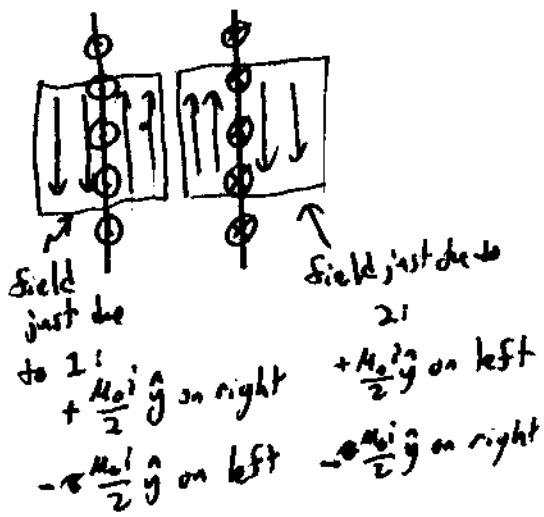 field
just due
to 1:
+ μ₀i/2 ŷ on right
- μ₀i/2 ŷ on left
field just due to
2:
+ μ₀i/2 ŷ on left
- μ₀i/2 ŷ on right